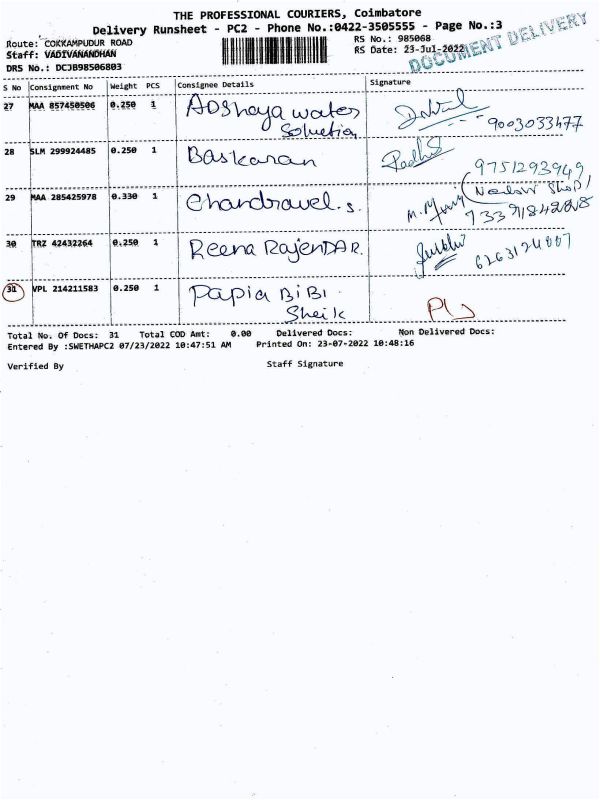 THE PROFESSIONAL COURIERS, Coimbatore
Delivery Runsheet - PC2 - Phone No.:0422-3505555 - Page No.:3
Route: COKKAMPUDUR ROAD
RS No.: 985068
Staff: VADIVANANDHAN
RS Date: 23-Jul-2022
DOCUMENT DELIVERY
DRS No.: DCJB98506803
S No Consignment No Weight PCS Consignee Details Signature
27 MAA 857450506 0.250 1 Adshaya water
Solution
9003033477
28 SLM 299924485 0.250 1 Baskaran
9751293949
29 MAA 285425978 0.330 1 Chandravel.s.
30 TRZ 42432264 0.250 1 Reena RajenDAR.
31 VPL 214211583 0.250 1 Papia BiBi
Sheik
Total No. Of Docs: 31 Total COD Amt: 0.00 Delivered Docs: Non Delivered Docs:
Entered By :SWETHAPC2 07/23/2022 10:47:51 AM Printed On: 23-07-2022 10:48:16
Verified By Staff Signature